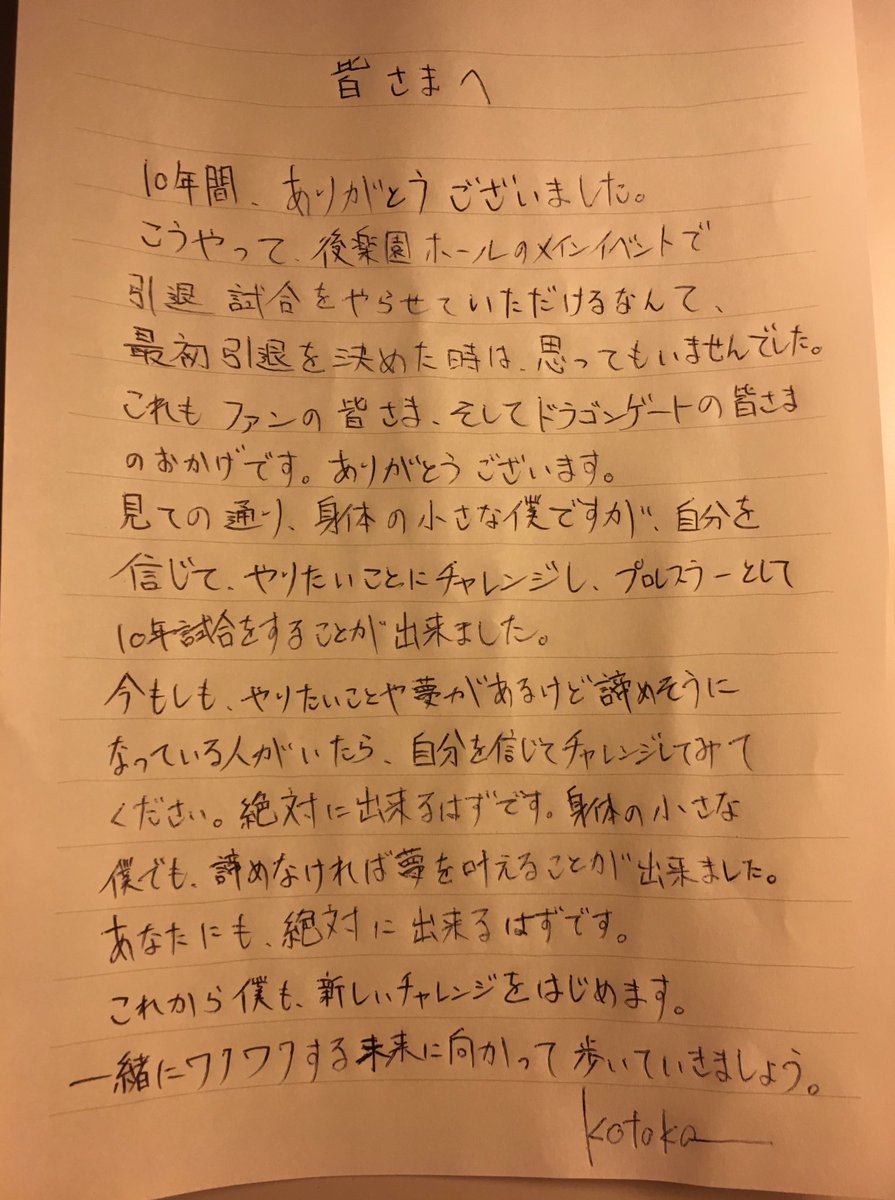 皆さまへ
10年間、ありがとうございました。
こうやって、後楽園ホールのメインイベントで
引退試合をやらせていただけるなんて、
最初引退を決めた時は、思ってもいませんでした。
これもファンの皆さま、そしてドラゴンゲートの皆さま
のおかげです。ありがとうございます。
見ての通り、身体の小さな僕ですが、自分を
信じて、やりたいことにチャレンジし、プロレスラーとして
10年試合をすることが出来ました。
今もしも、やりたいことや夢があるけど諦めそうに
なっている人がいたら、自分を信じてチャレンジしてみて
ください。絶対に出来るはずです。身体の小さな
僕でも、諦めなければ夢を叶えることが出来ました。
あなたにも、絶対に出来るはずです。
これから僕も、新しいチャレンジをはじめます。
一緒にワクワクする未来に向かって歩いていきましょう。
Kotoka